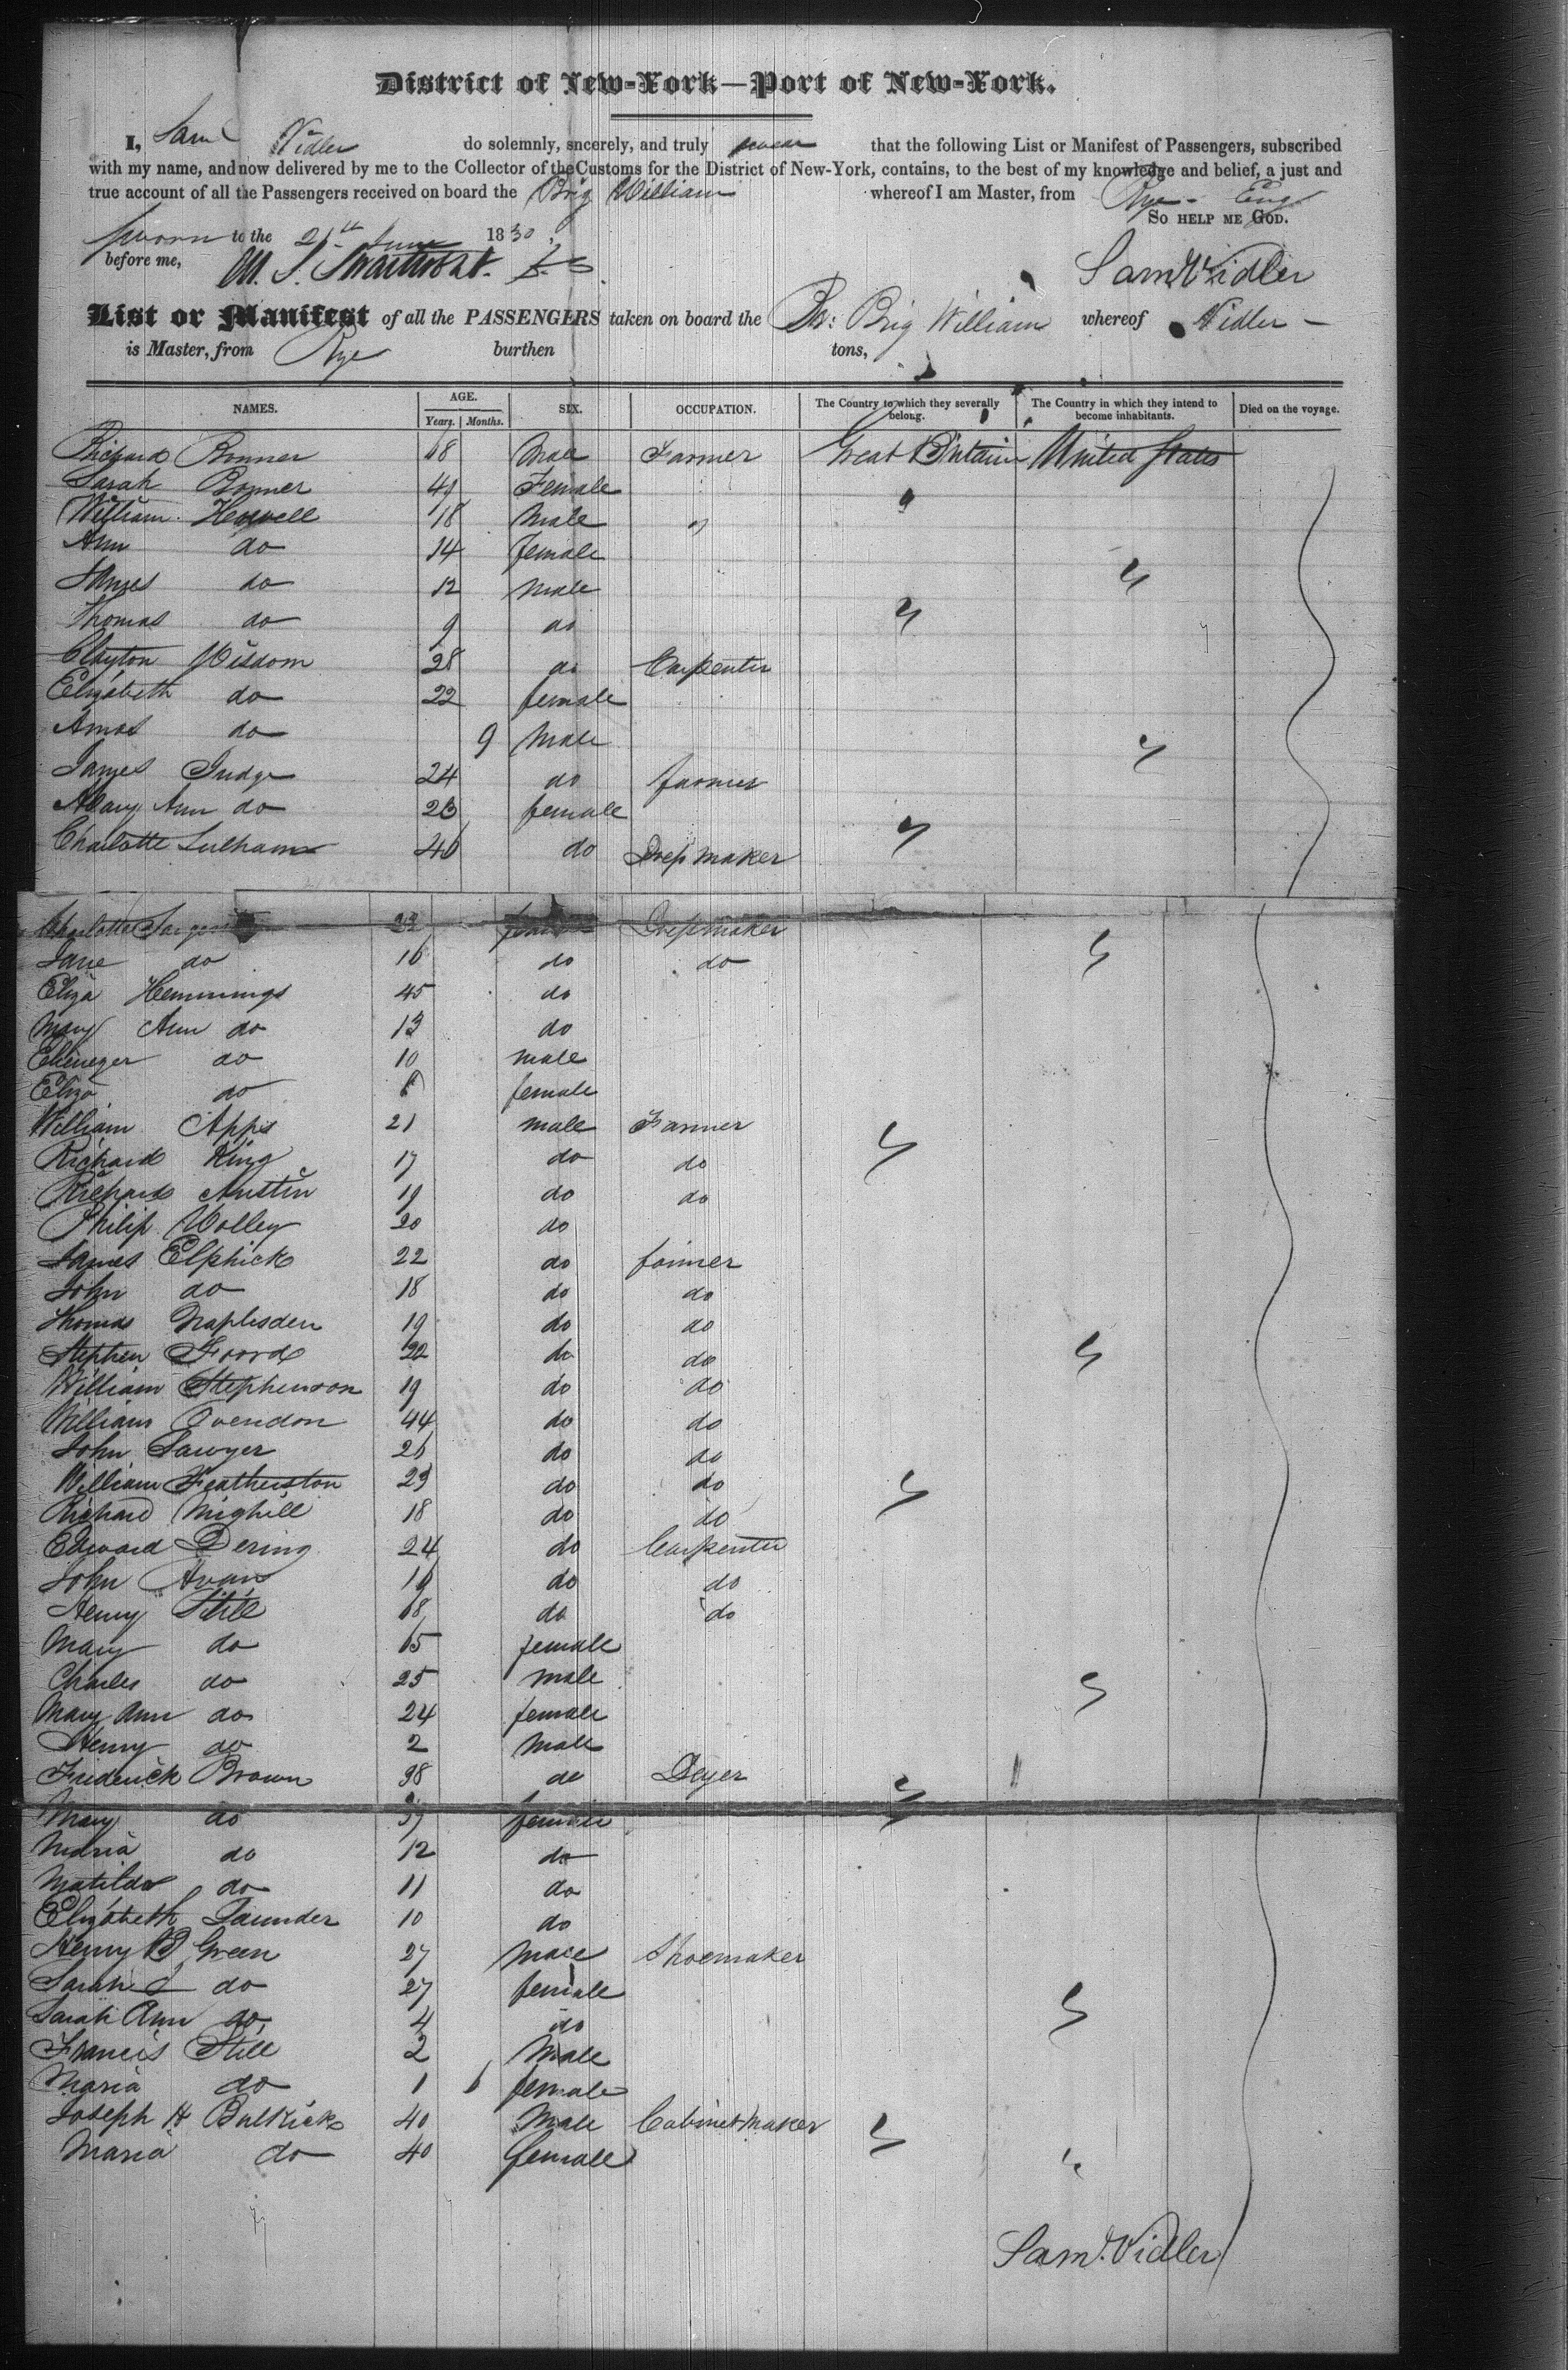 District of New-York—Port of New-York.
I, Saml Vidler do solemnly, sncerely, and truly swear that the following List or Manifest of Passengers, subscribed
with my name, and now delivered by me to the Collector of the Customs for the District of New-York, contains, to the best of my knowledge and belief, a just and
true account of all the Passengers received on board the Brig William whereof I am Master, from Rye - Eng
So HELP ME GOD.
Sworn to the 21st June 1830,
before me, Saml Vidler
List or Manifest of all the PASSENGERS taken on board the Br: Brig William whereof Vidler -
is Master, from Rye burthen tons,
NAMES. AGE. Years. Months. SEX. OCCUPATION. The Country to which they severally belong. The Country in which they intend to become inhabitants. Died on the voyage.
Richard Bonner 68 Male Farmer Great Britain United States
Sarah Bonner 49 Female
William 18 Male "
Ann do 14 female
James do 12 male
Thomas do 9 do
Clayton Wisdom 28 do Carpenter
Elizabeth do 22 female
Amos do 9 Male
James Judge 24 do farmer
Mary Ann do 23 female
Charlotte Lulham 46 do Dressmaker
Charlotte 22 female Dressmaker
Jane do 16 do do
Eliza Hemmings 45 do
Mary Ann do 13 do
Ebenezer do 10 male
Eliza do 6 female
William Apps 21 male Farmer
Richard King 17 do do
Richard Austin 19 do do
Philip Holley 20 do
James Elphick 22 do farmer
John do 18 do do
Thomas Naplesden 19 do do
Stephen Foord 22 do do
William Stephenson 19 do do
William Ovendon 44 do do
John Sawyer 26 do do
William Featherston 23 do do
Richard Mighill 18 do do
Edward Dering 24 do Carpenter
John 19 do do
Henry Still 68 do do
Mary do 65 female
Charles do 25 male
Mary Ann do 24 female
Henry do 2 Male
Frederick Brown 38 do Dyer
Mary do 37 female
Maria do 12 do
Matilda do 11 do
Elizabeth Saunder 10 do
Henry B Green 27 Male Shoemaker
Sarah S do 27 female
Sarah Ann do 4 do
Francis Still 2 Male
Maria do 1 6 female
Joseph H Bulkick 40 Male Cabinet Maker
Maria do 40 female
Saml. Vidler